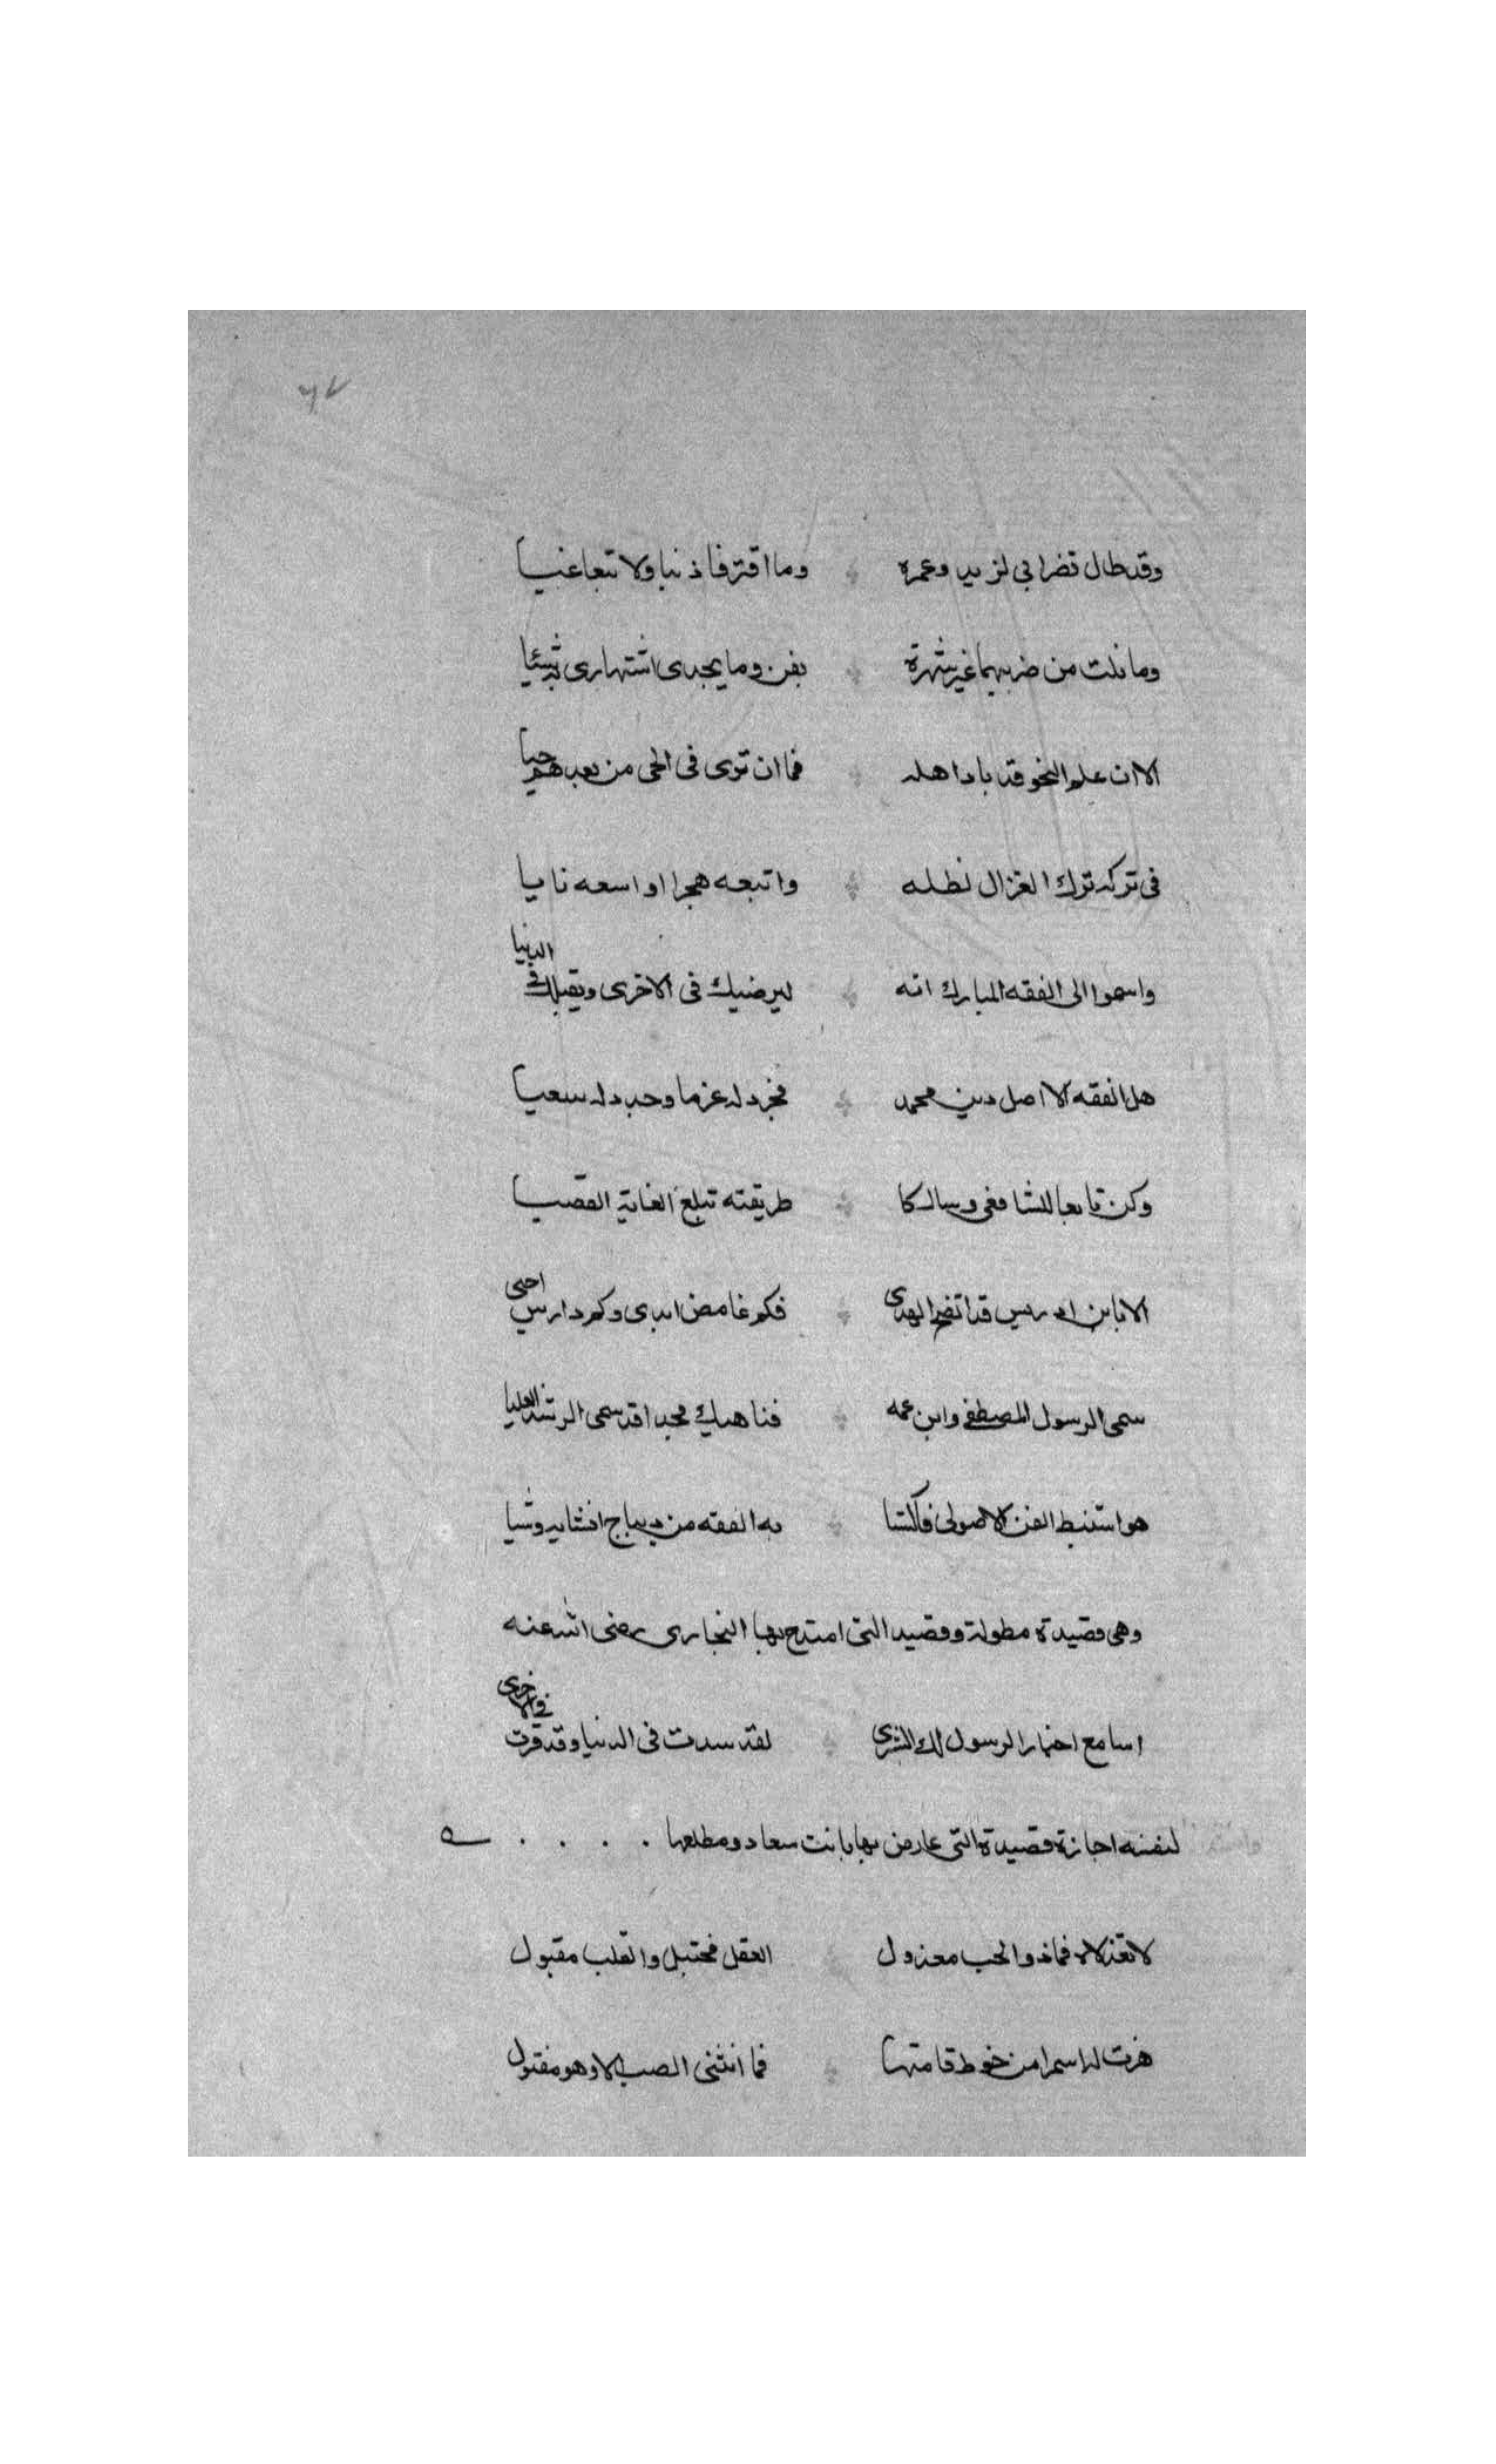 ٧٢
وقد طال تضرابي لزيد وعمره وما اقترفا ذنبا ولا تبعا غيا
وما نلت من ضربيهما غير شهرة بفن وما يجدى اشتهارى به شيئا
الا ان علم النحو قد باد اهله فما ان ترى فى الحى من بعدهم حيا
فى تركه ترك الغزال لظله واتبعه هجرا او اسعه نايا
واسموا الى الفقه المبارك انه ليرضيك فى الاخرى ويقبلك فى الدنيا
هل الفقه الا اصل دين محمد فجرد له عزما وجدد له سعيا
وكن تابعا للشافعى وسالكا طريقته تبلغ الغاية القصيا
الا بابن ادريس قد اتضح الهدى فكم غامض ابدى وكم دارس احيى
سمى الرسول المصطفى وابن عمه فناهيك مجدا قد سمى الرتبة العليا
هو استنبط الفن الاصولى فاكتسا به الفقه من ديباج انشايه وشيا
وهى قصيدة مطولة وقصيد التى امتدح بها البخارى رضى الله عنه
اسامع اخبار الرسول لك البشرى لقد سدت فى الدنيا وقد فزت فى الاخرى
لنفسه اجازة قصيدة التى عارض بها بانت سعاد ومطلعها
لا تعذلاه فما ذو الحب معذول العقل مختبل والقلب مقبول
هزت له اسمرا من خوط قامتها فما انثنى الصب الا وهو مقتول